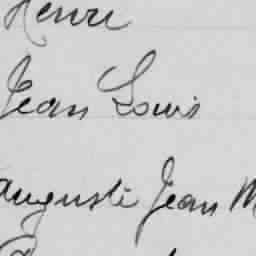 Henri
Jean Louis
Auguste Jean M